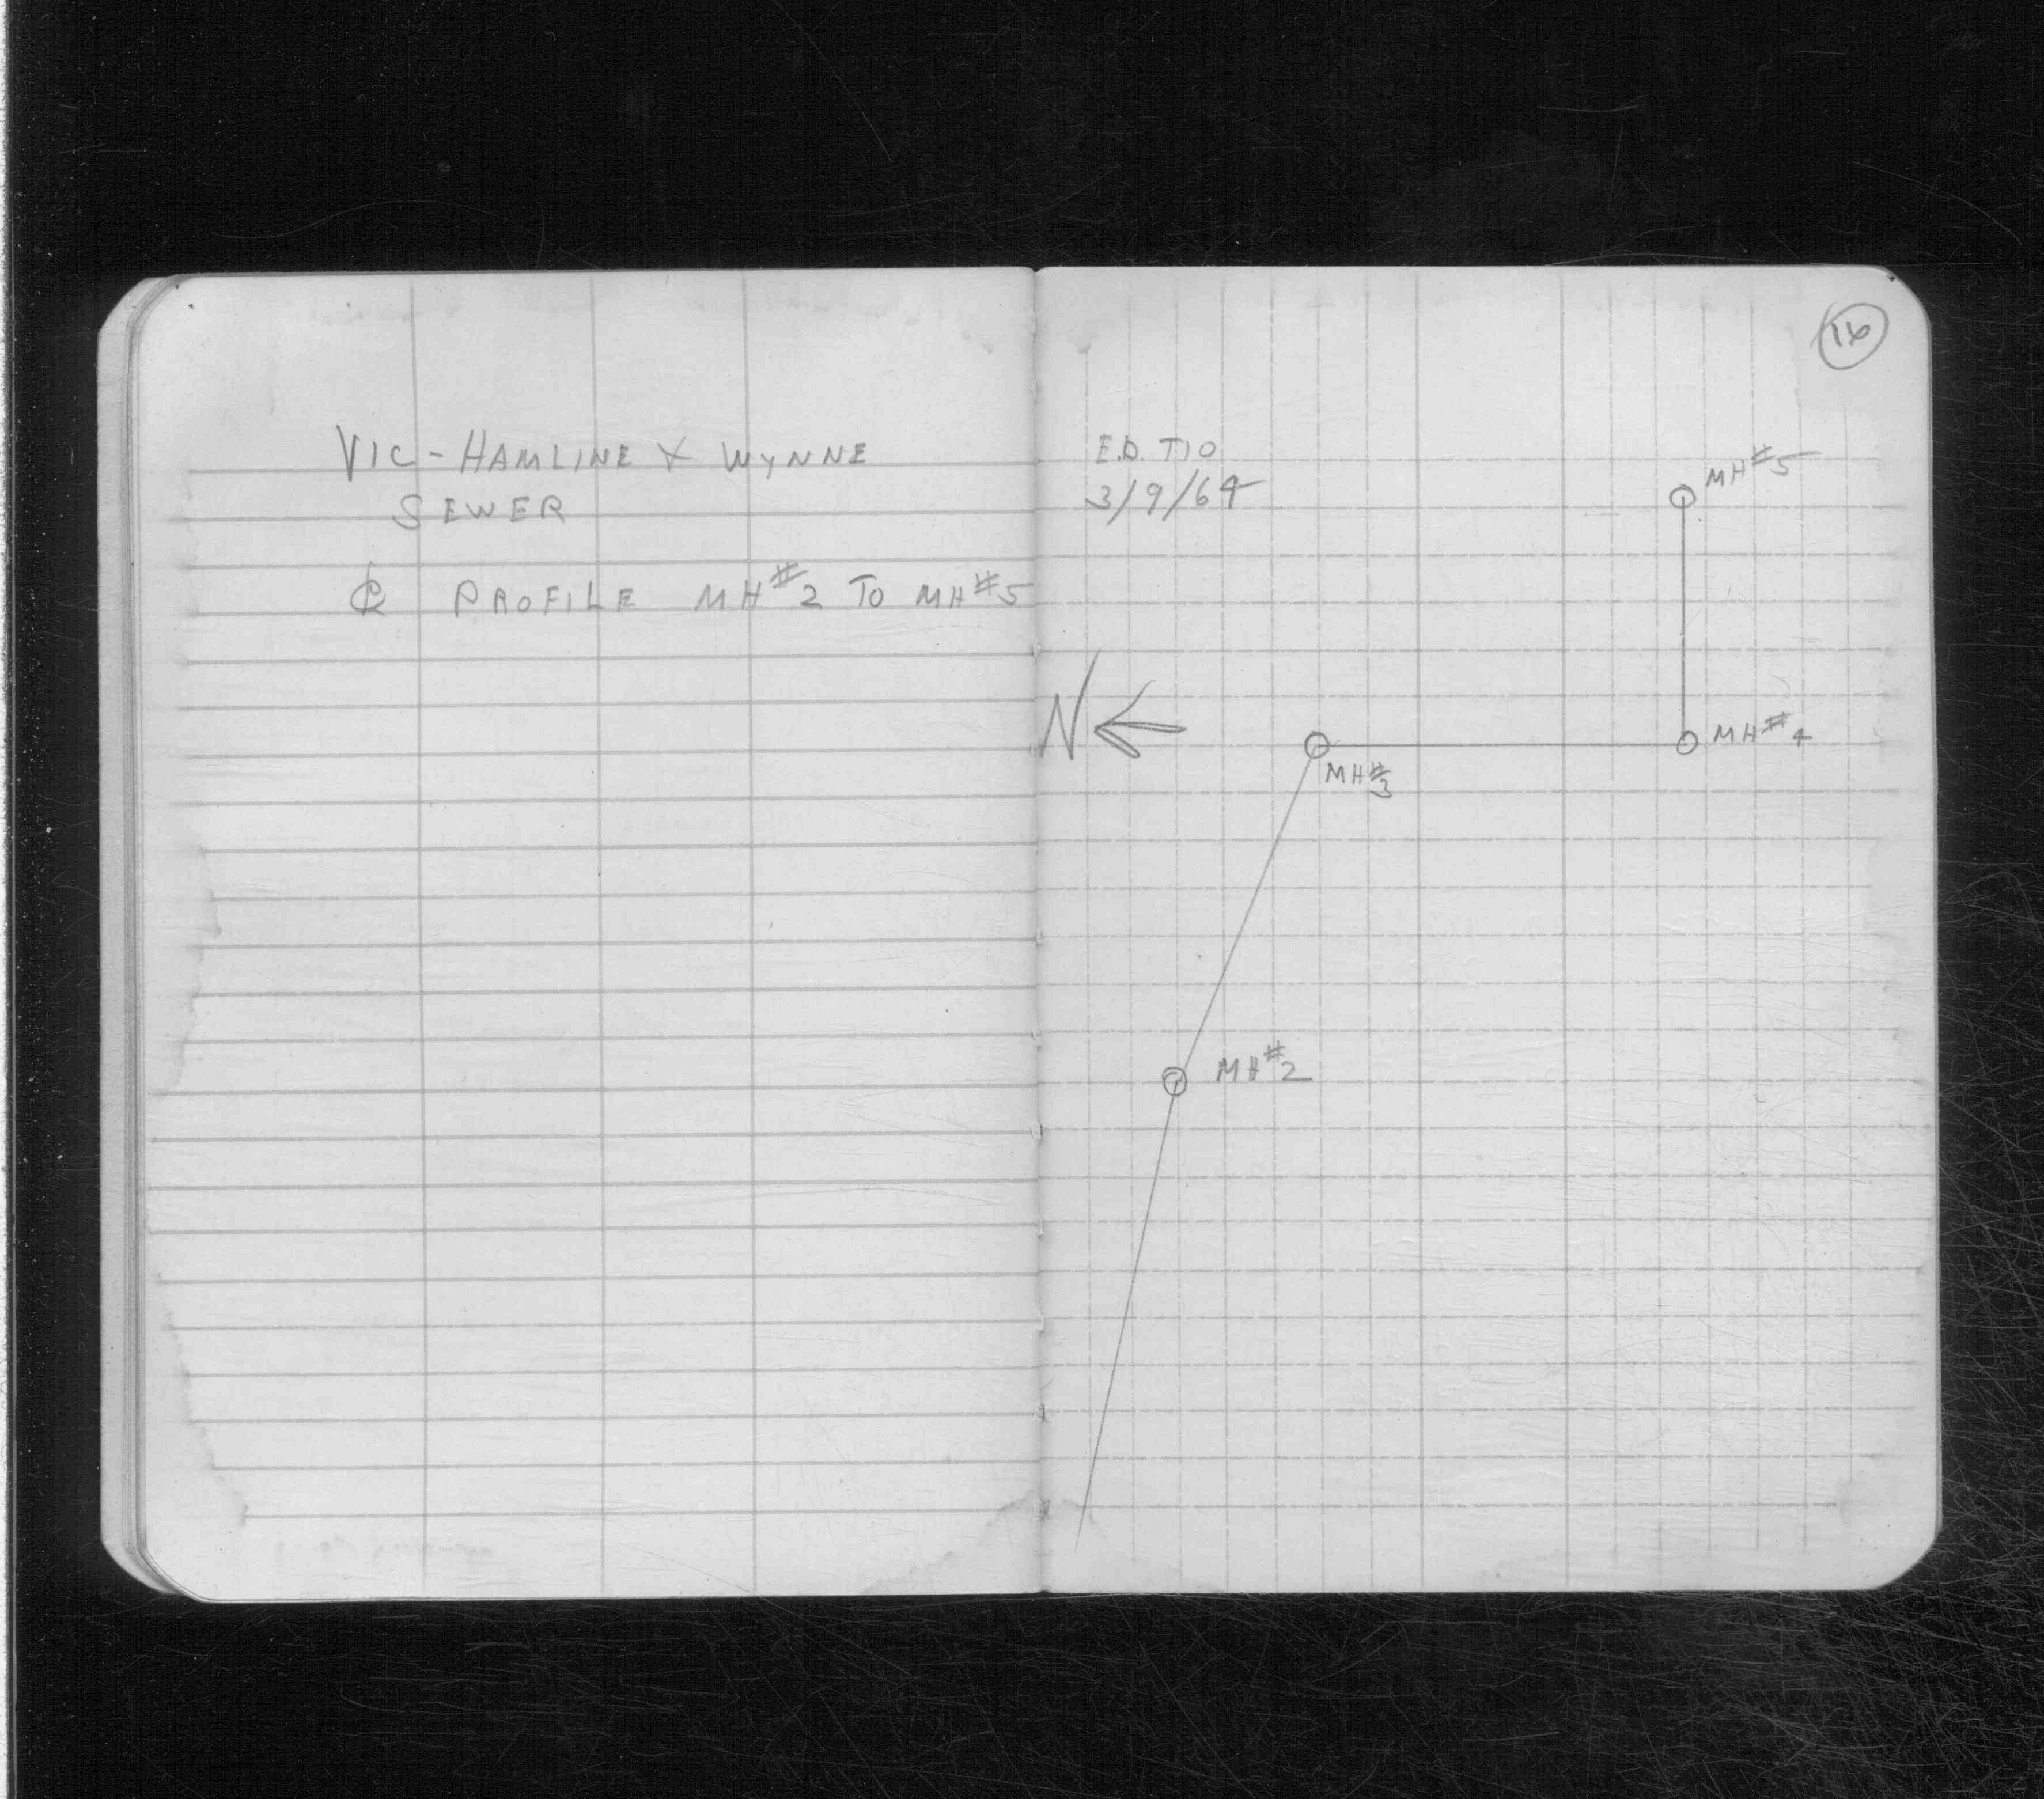 VIC-HAMLINE & WYNNE
SEWER
℄ PROFILE MH#2 TO MH#5
16
E.D. T10
3/9/64
MH#5
N
MH#4
MH#3
MH#2